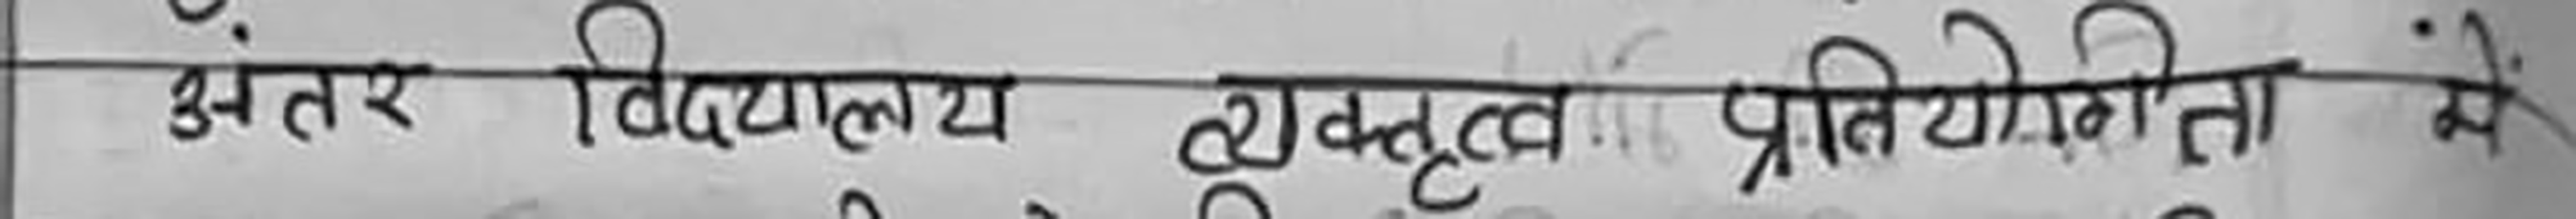 अंतर विद्यालय व्यक्तृत्व प्रतियोगिता में